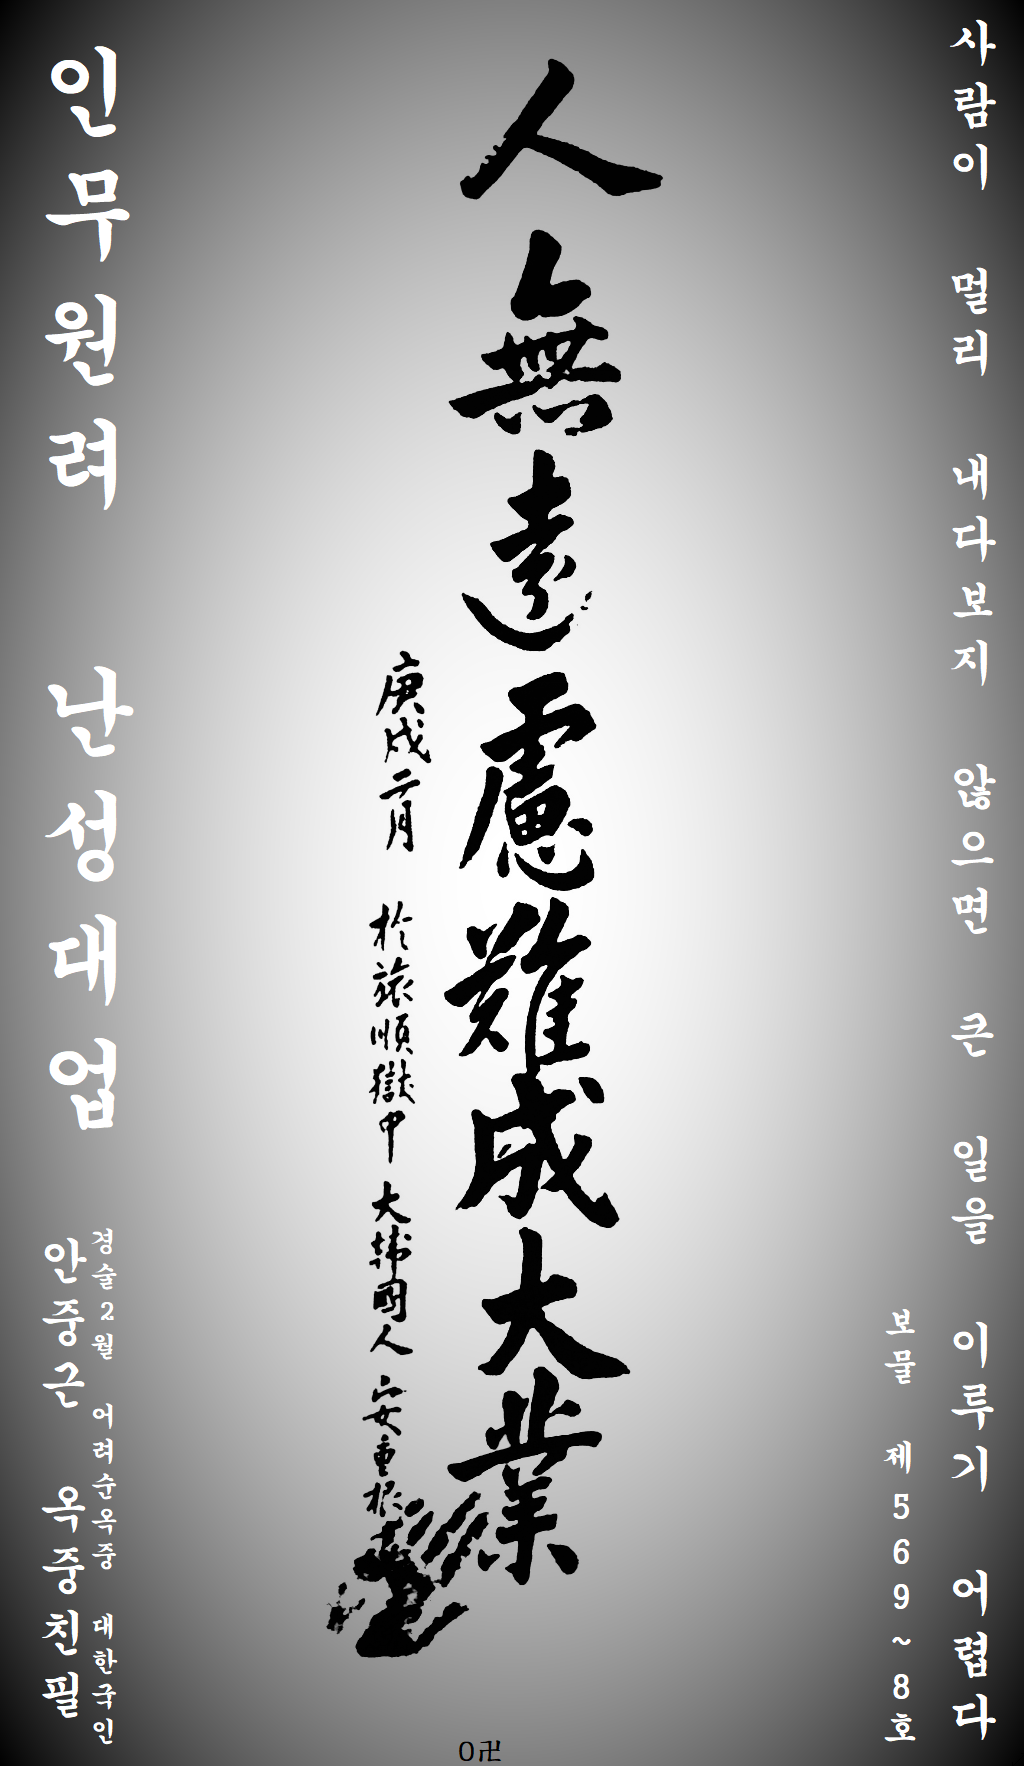 사람이 멀리 내다보지 않으면 큰 일을 이루기 어렵다
보물 제569~8호
人無遠慮難成大業
庚戌二月 於旅順獄中 大韓國人 安重根書
경술2월 어려순옥중 대한국인
안중근 옥중친필
인무원려 난성대업
0卍